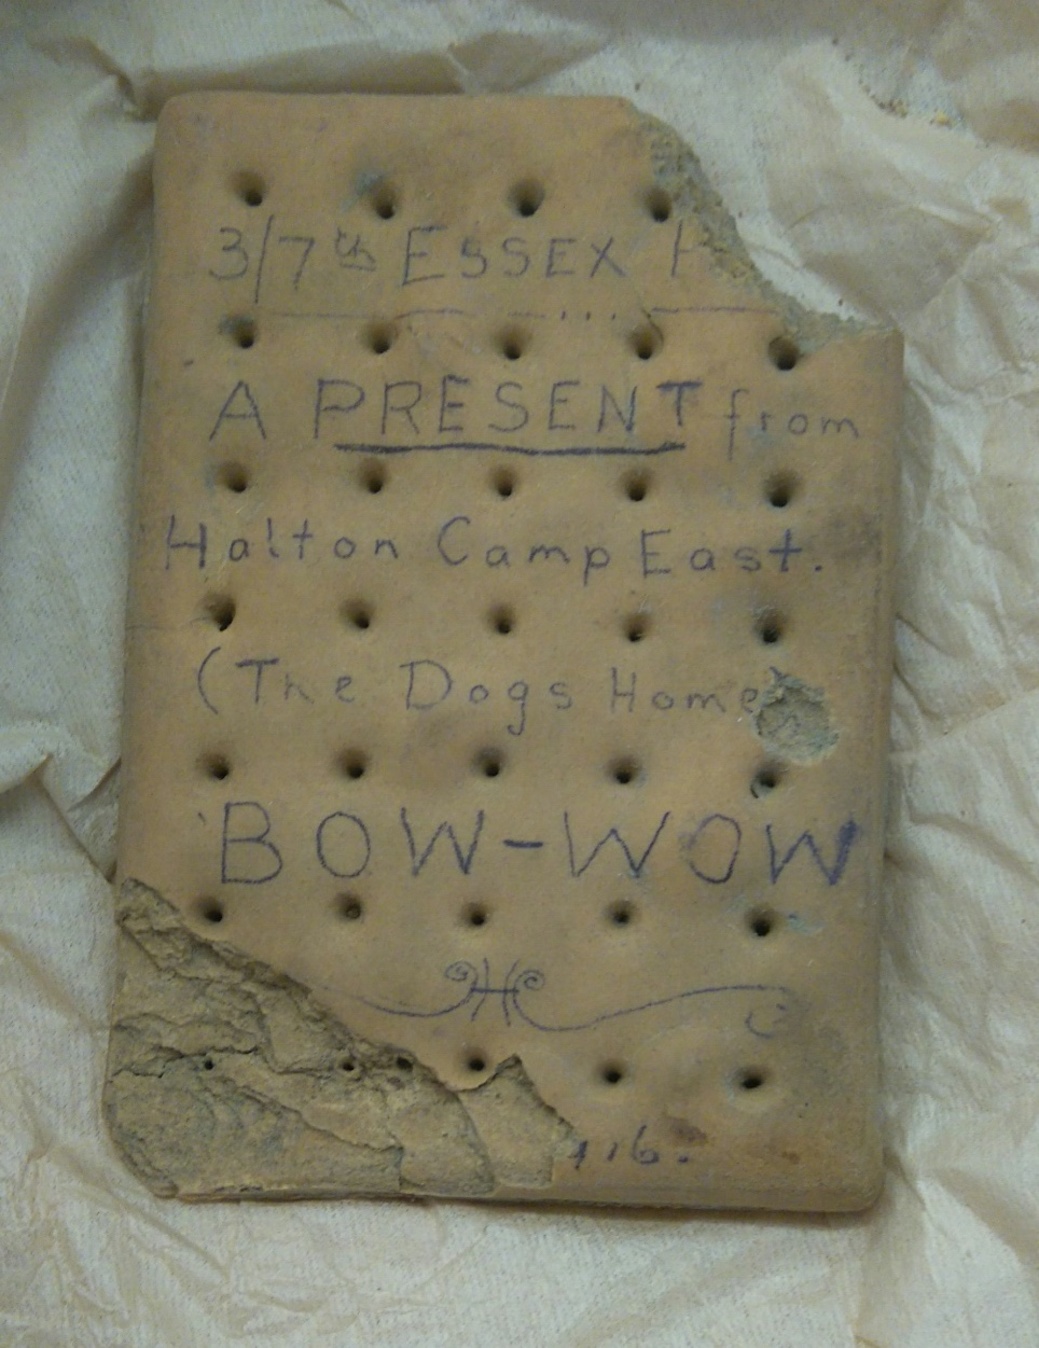 3/7th ESSEX
A PRESENT from
Halton Camp East.
(The Dogs Home)
BOW-WOW
16.